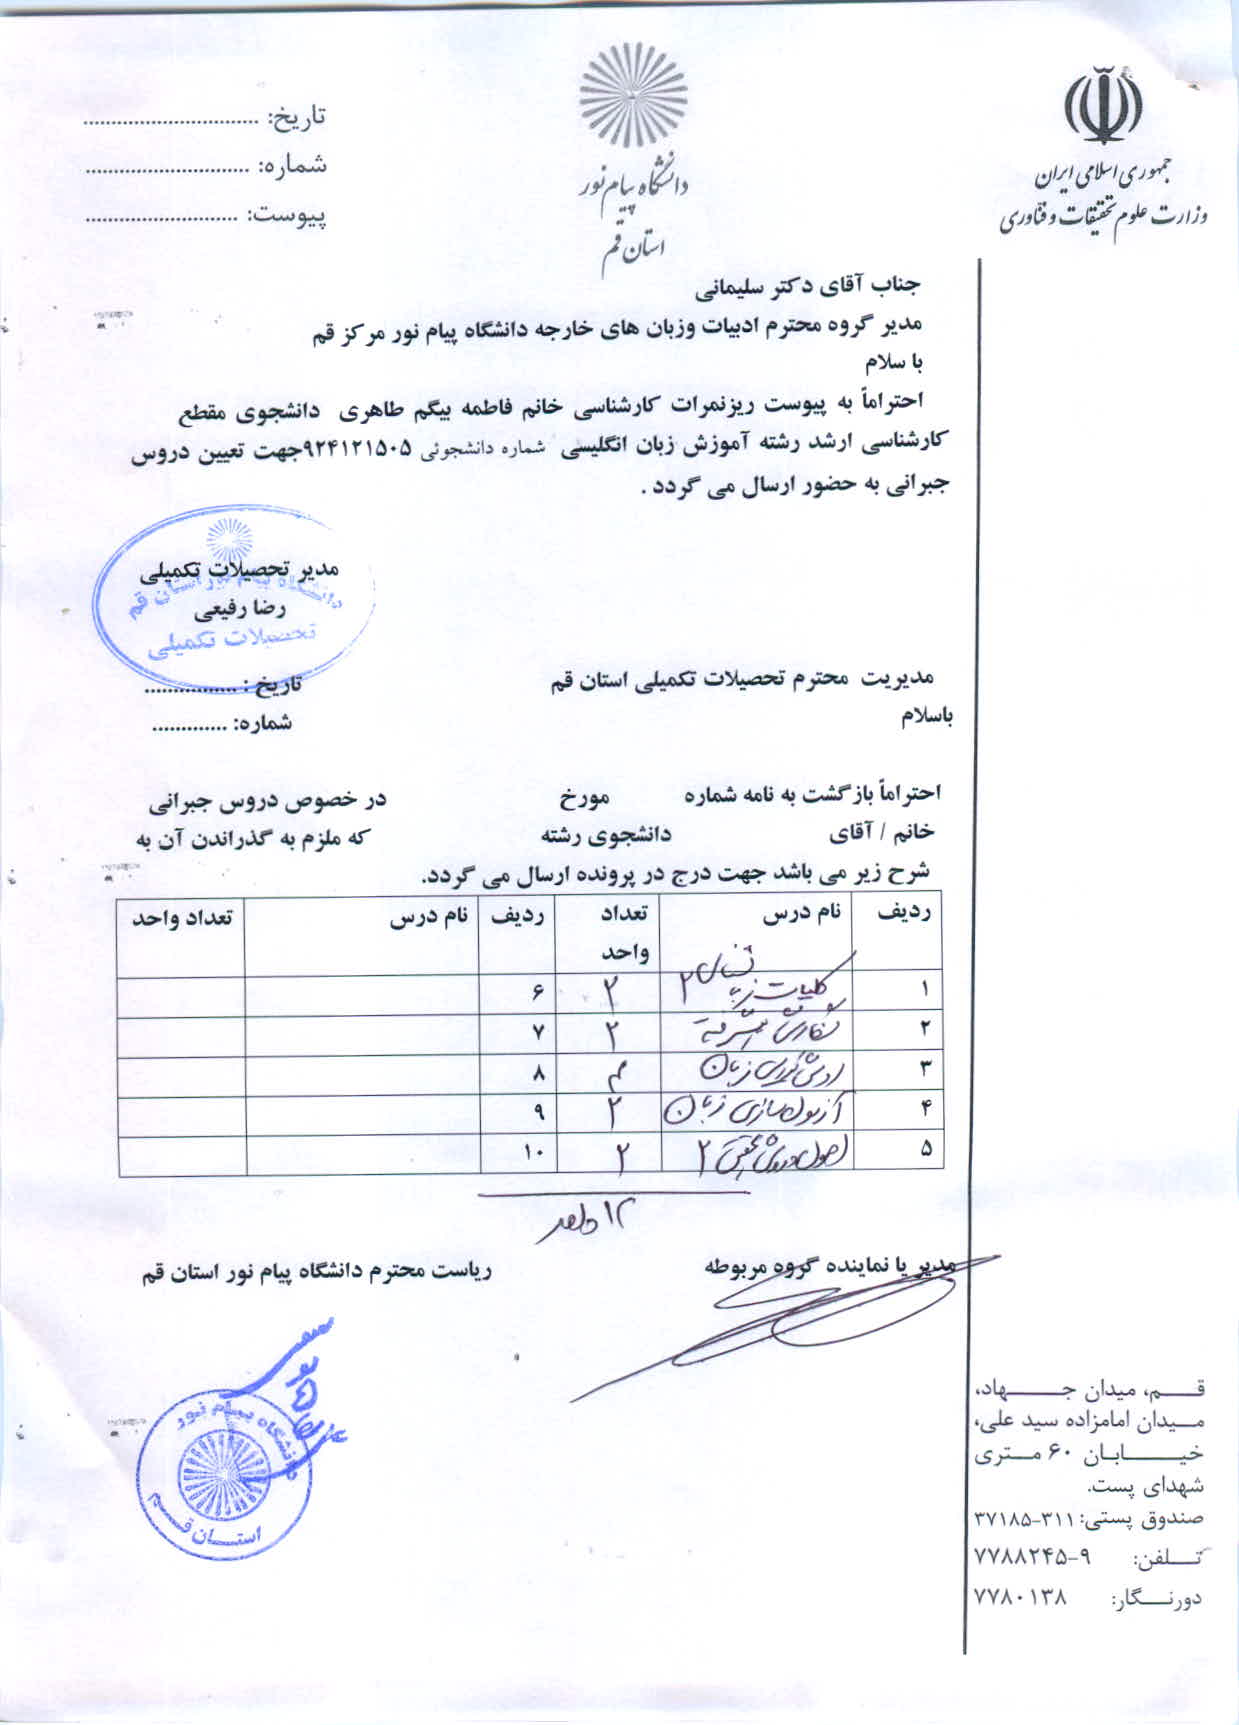 جمهوری اسلامی ایران
وزارت علوم تحقیقات و فناوری
دانشگاه پیام نور
استان قم
تاریخ: ..............................
شماره: ............................
پیوست: ..........................
جناب آقای دکتر سلیمانی
مدیر گروه محترم ادبیات وزبان های خارجه دانشگاه پیام نور مرکز قم
با سلام
احتراماً به پیوست ریزنمرات کارشناسی خانم فاطمه بیگم طاهری دانشجوی مقطع
کارشناسی ارشد رشته آموزش زبان انگلیسی شماره دانشجوئی ۹۲۴۱۲۱۵۰۵جهت تعیین دروس
جبرانی به حضور ارسال می گردد .
مدیر تحصیلات تکمیلی
رضا رفیعی
دانشگاه پیام نور استان قم
تحصیلات تکمیلی
مدیریت محترم تحصیلات تکمیلی استان قم
تاریخ : ................
باسلام
شماره: .............
احتراماً بازگشت به نامه شماره مورخ در خصوص دروس جبرانی
خانم / آقای دانشجوی رشته که ملزم به گذراندن آن به
شرح زیر می باشد جهت درج در پرونده ارسال می گردد.
ردیف نام درس تعداد واحد ردیف نام درس تعداد واحد
۱ کلیات زبانشناسی ۲ ۲ ۶
۲ نگارش پیشرفته ۲ ۷
۳ روش تدریس زبان ۴ ۸
۴ آزمون سازی زبان ۲ ۹
۵ اصول و روش تحقیق ۲ ۲ ۱۰
۱۲ واحد
مدیر یا نماینده گروه مربوطه
ریاست محترم دانشگاه پیام نور استان قم
دانشگاه پیام نور
استان قم
قم، میدان جهاد،
میدان امامزاده سید علی،
خیابان ۶۰ متری
شهدای پست.
صندوق پستی: ۳۱۱-۳۷۱۸۵
تلفن: ۹-۷۷۸۸۲۴۵
دورنگار: ۷۷۸۰۱۳۸